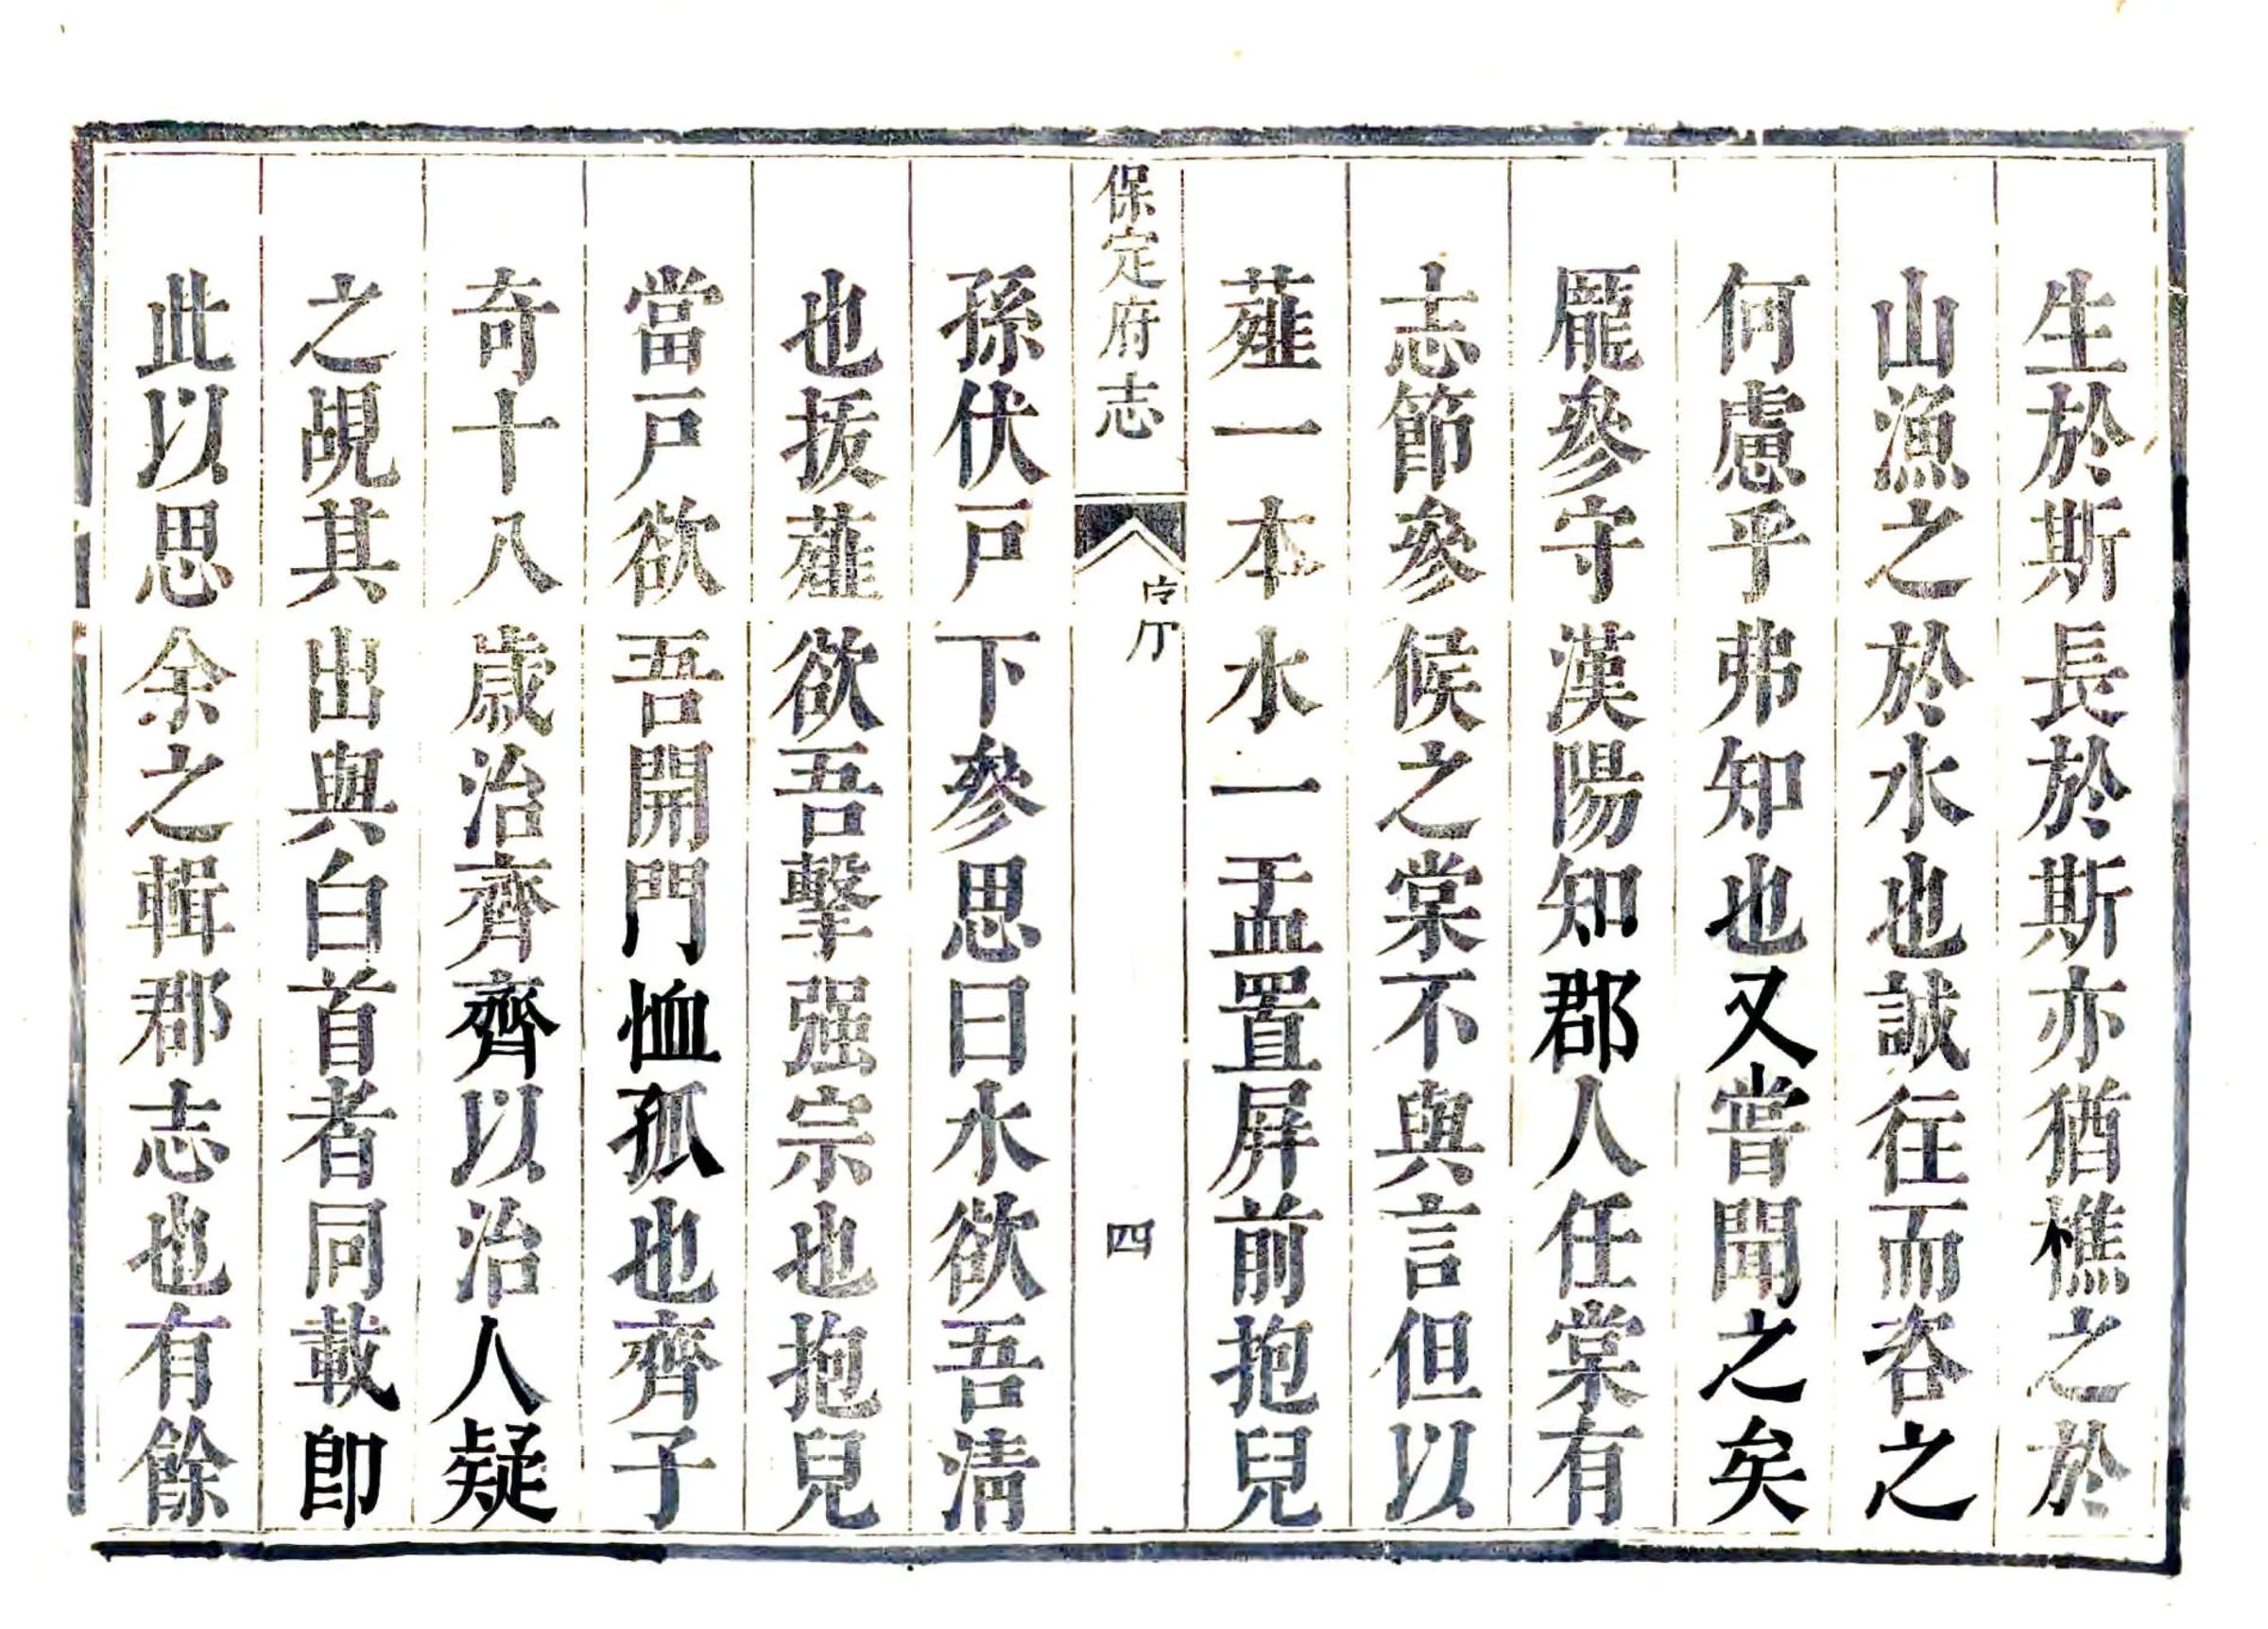 生於斯長於斯亦猶樵之於
山漁之於水也誠往而咨之
何慮乎弗知也又嘗聞之矣
龎參守漢陽知郡人任棠有
志節參候之棠不與言但以
薤一本水一盂置屏前抱兒
保定府志
四
孫伏戸下參思曰水欲吾淸
也拔薤欲吾擊强宗也抱兒
當戸欲吾開門恤孤也齊子
奇十八歲治齊齊以治人疑
之覘其出與白首者同載卽
此以思余之輯郡志也有餘